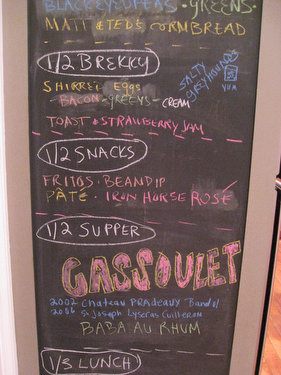 BLACKEYED PEAS · GREENS ·
MATT & TED'S CORNBREAD
1/2 BREKKY
SALTY
GREYHOUNDS
YUM
SHIRRED EGGS
- BACON - GREENS - CREAM
TOAST & STRAWBERRY JAM
1/2 SNACKS
FRITOS · BEAN DIP
PÂTÉ · IRON HORSE ROSÉ
1/2 SUPPER
GASSOULET
2002 Chateau PRADEAUX Bandol
2006 St Joseph Lyseras Cuilleron
BABA AU RHUM
1/3 LUNCH